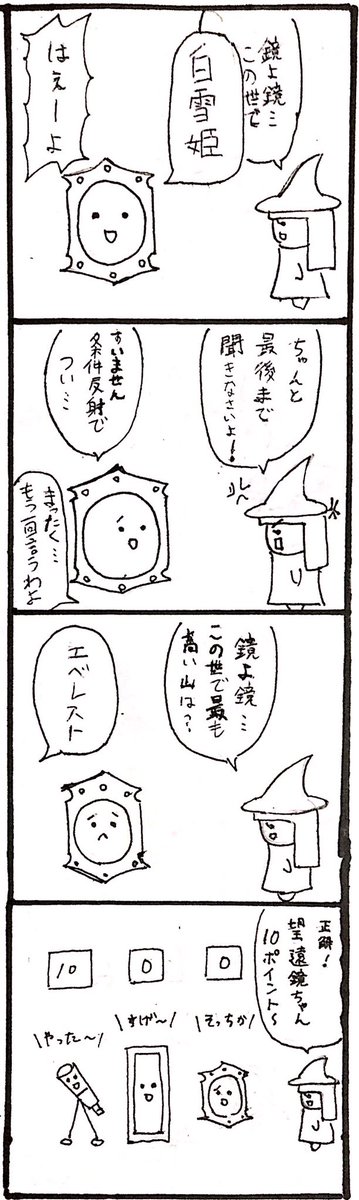 鏡よ鏡…
この世で
白雪姫
はえーよ
ちゃんと
最後まで
聞きなさいよ!
すいません
条件反射で
つい…
まったく…
もう一回言うわよ
鏡よ鏡…
この世で最も
高い山は??
エベレスト
正解!
望遠鏡ちゃん
10ポイント〜
0
0
10
そっちか
すげ〜
やった〜